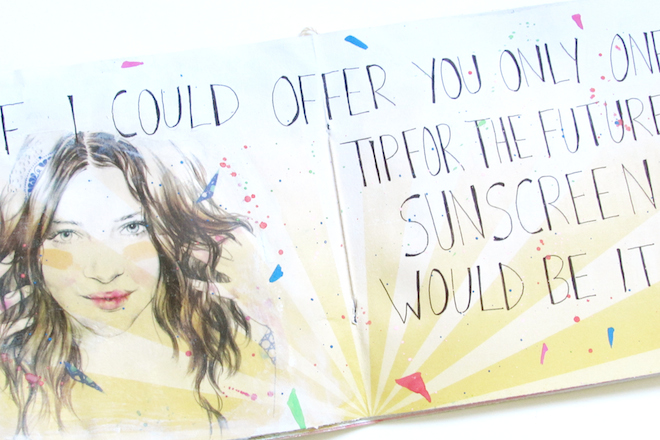 F I COULD OFFER YOU ONLY ONE
TIP FOR THE FUTURE
SUNSCREEN
WOULD BE IT